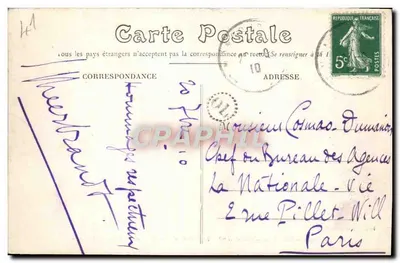 41
Carte Postale
Tous les pays étrangers n'acceptent pas la correspondance au recto (Se renseigner à la
CORRESPONDANCE
ADRESSE
REPUBLIQUE FRANCAISE
5c
POSTES
10
20 7bre 10
Hommages respectueux
CPARAMA
Monsieur Cosmao-Dumanoir
Chef du Bureau des Agences
La Nationale-Vie
2 rue Pillet-Will
Paris